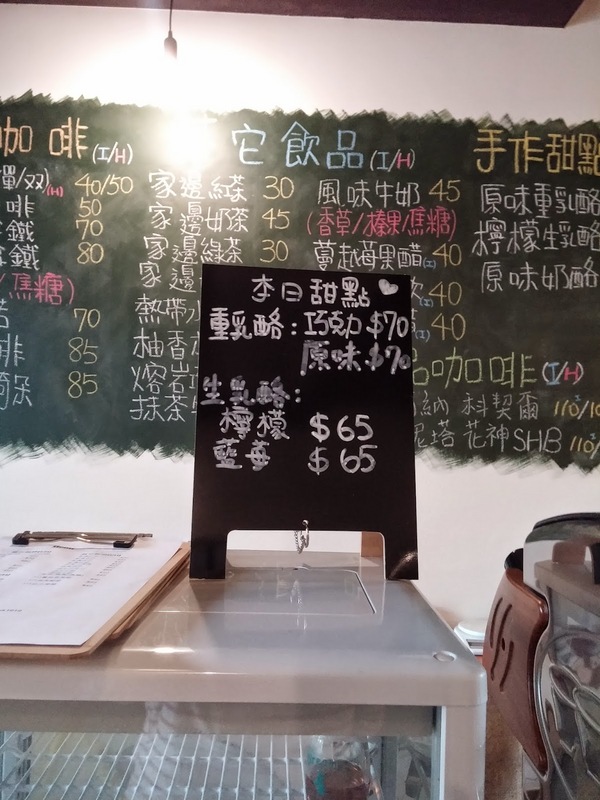 咖啡(I/H)
單/双)(H) 40/50
啡 50
鐵 70
鐵 80
/焦糖)
70
啡 85
85
它飲品(I/H)
家邊紅茶 30
家邊奶茶 45
家邊綠茶 30
家邊
熱帶
柚香
熔岩
抹茶
風味牛奶 45
(香草/榛果/焦糖)
蔓越莓果醋(I) 40
40
40
品咖啡(I/H)
納 科契爾 110/10
尼塔 花神SHB 110/
手作甜點
原味重乳酪
檸檬生乳酪
原味奶酪
本日甜點
重乳酪：巧克力 $70
原味 $70
生乳酪：
檸檬 $65
藍莓 $65